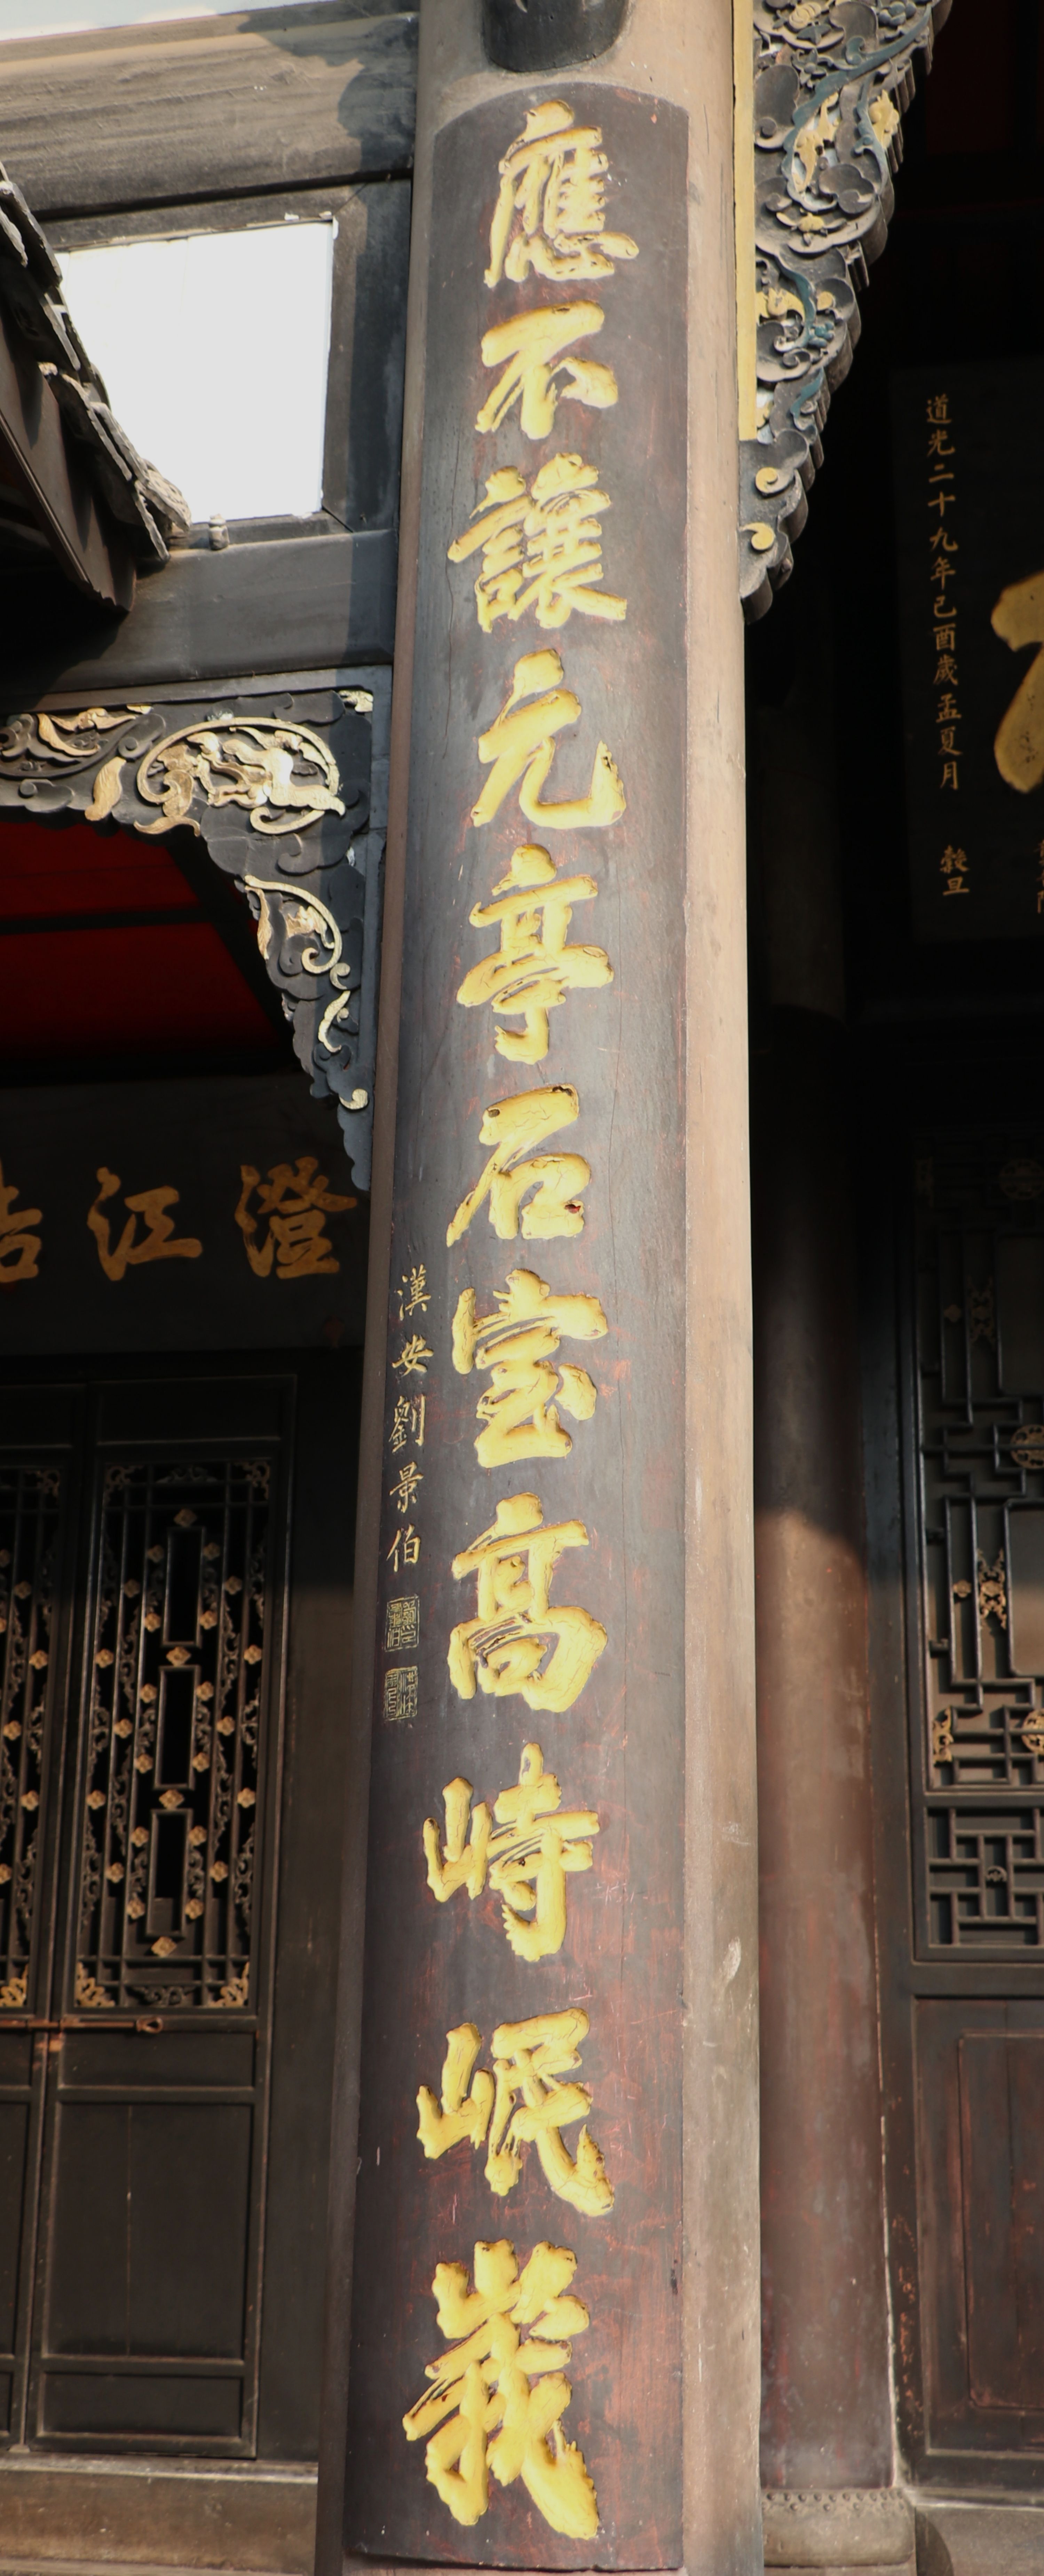 道光二十九年己酉歲孟夏月 穀旦
應不讓元亭石室高峙岷峩
漢安劉景伯
澄江